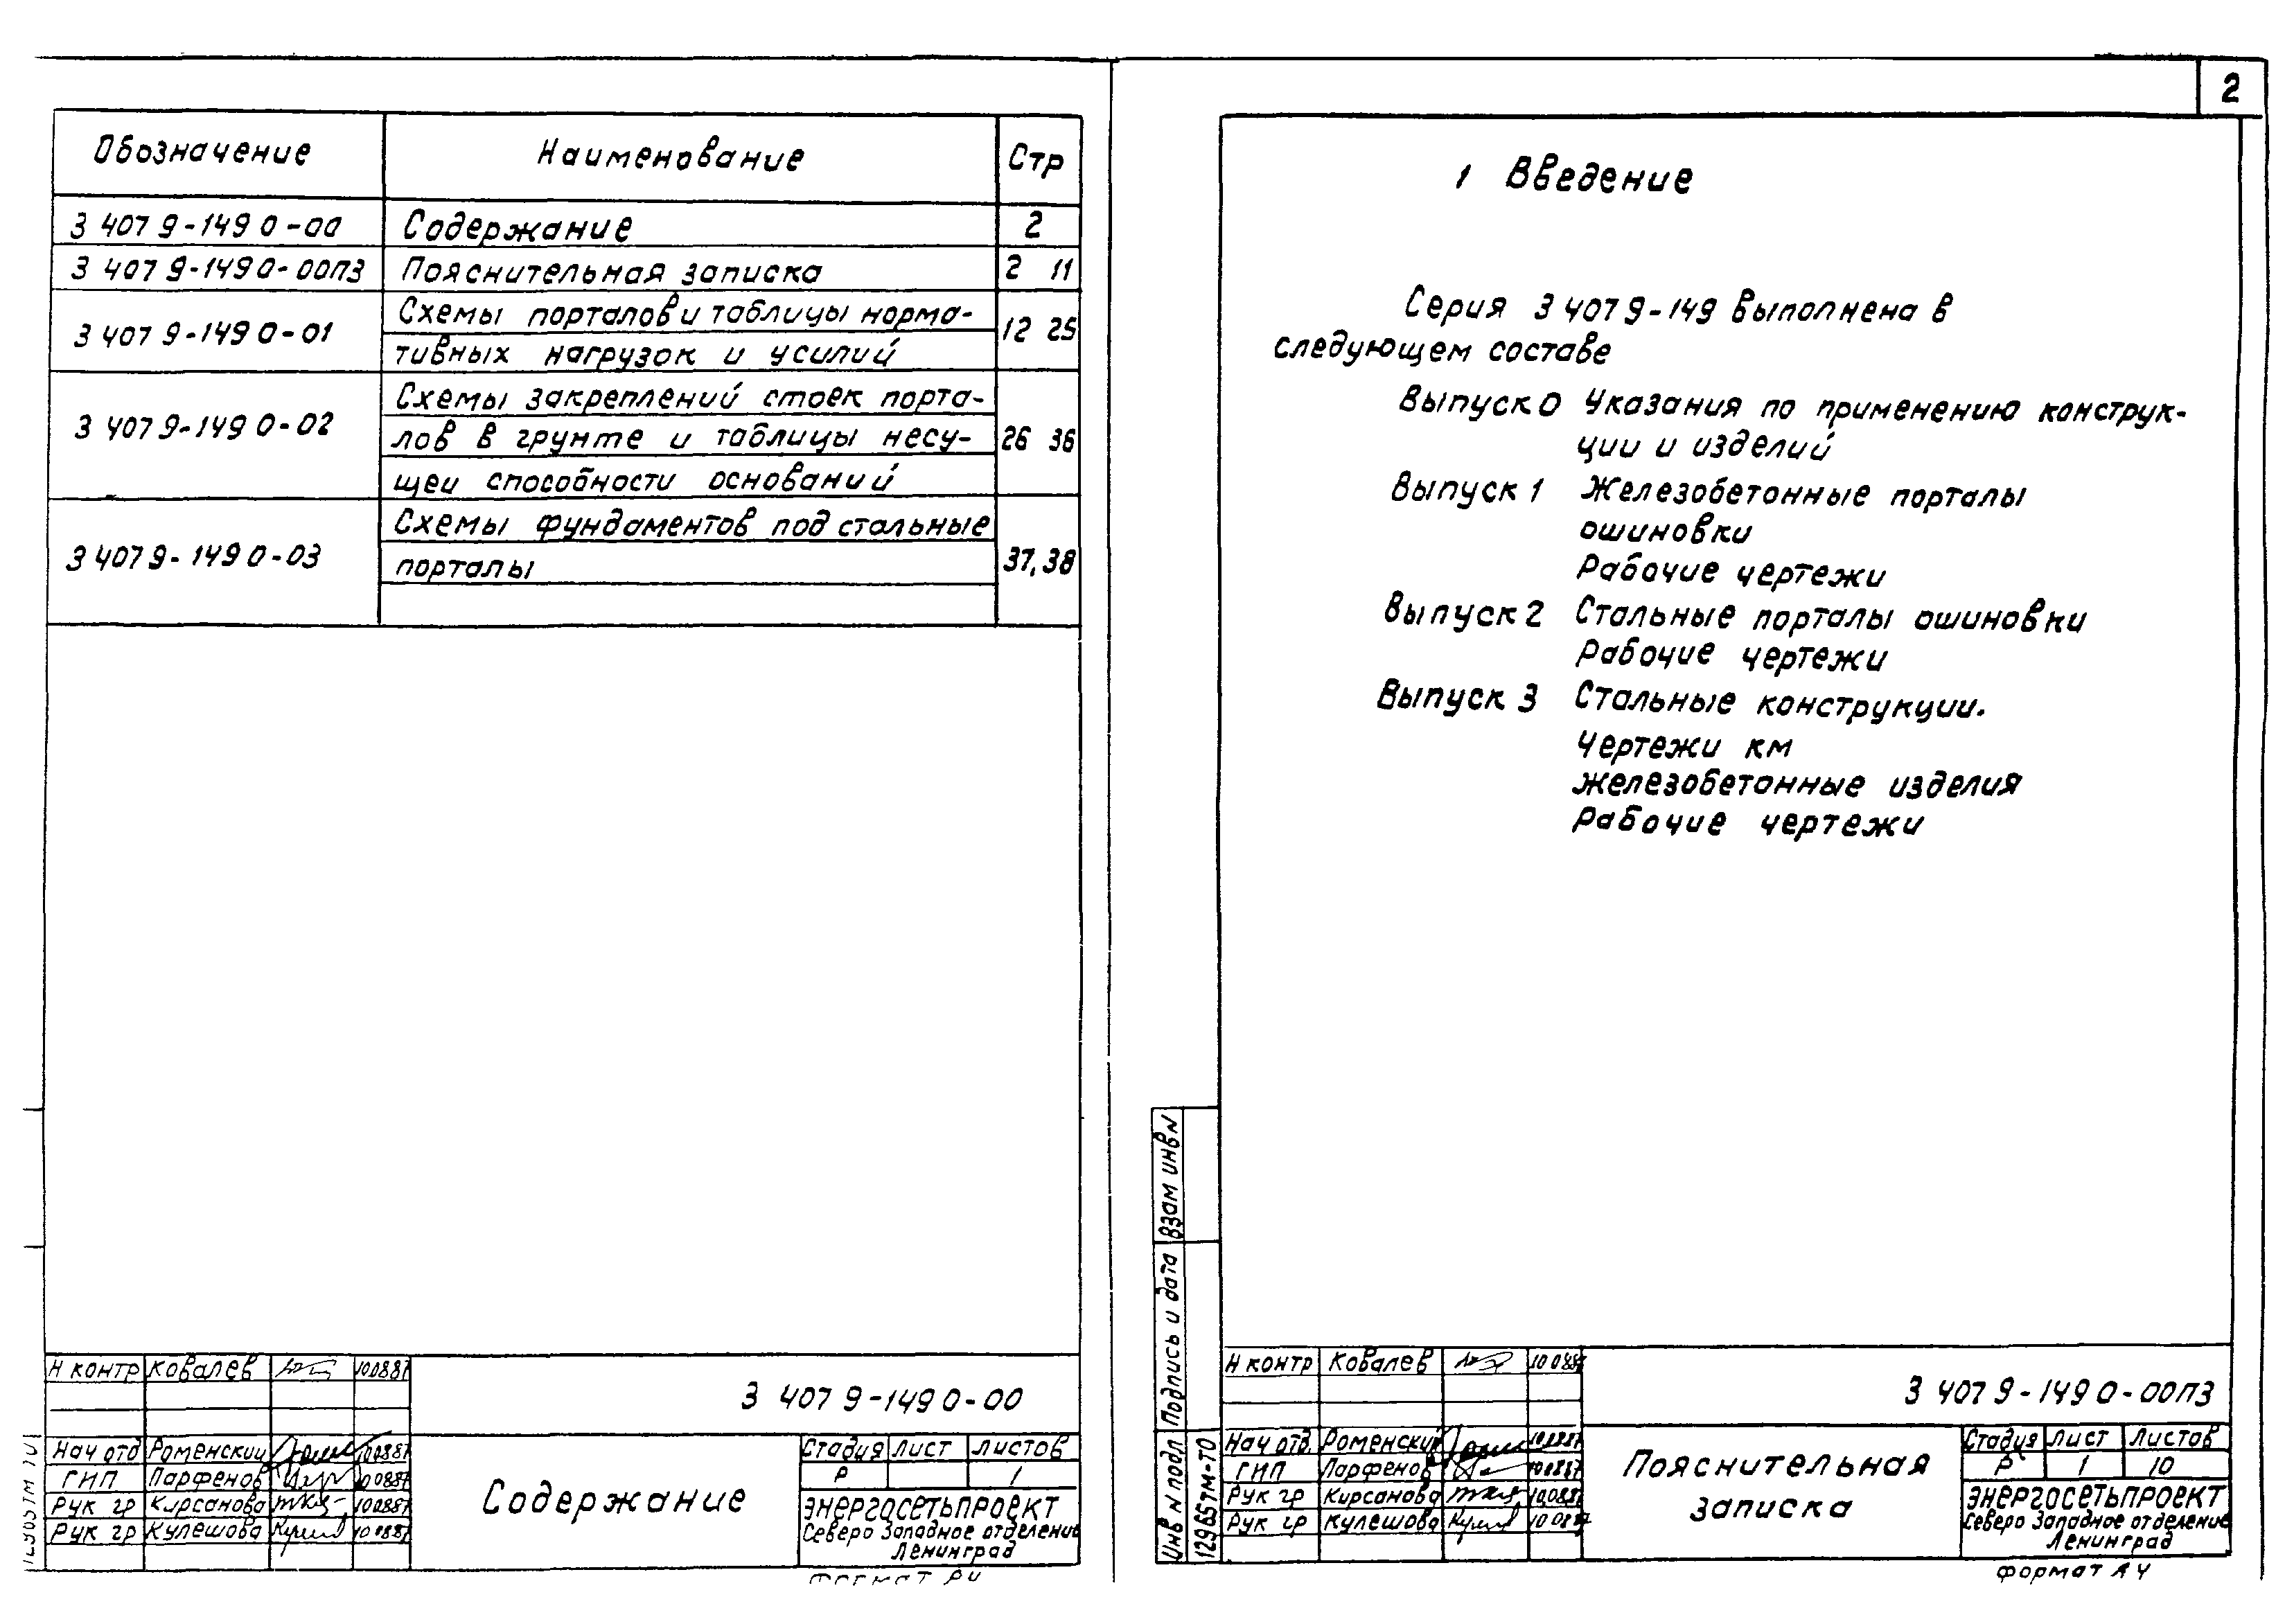 Обозначение Наименование Стр
3 407 9-149 0-00 Содержание 2
3 407 9-149 0-00ПЗ Пояснительная записка 2 11
3 407 9-149 0-01 Схемы порталов и таблицы норма-
тивных нагрузок и усилий 12 25
3 407 9-149 0-02 Схемы закреплений стоек порта-
лов в грунте и таблицы несу-
щеи способности оснований 26 36
3 407 9-149 0-03 Схемы фундаментов под стальные
порталы 37,38
Н контр Ковалев 100887
3 407 9-149 0-00
Нач отд Роменский 100887
ГИП Парфенов 100887
Рук гр Кирсанова 100887
Рук гр Кулешова 100887
Содержание
Стадия Лист Листов
Р 1
Энергосетьпроект
Северо Западное отделение
Ленинград
формат А4
2
1 Введение
Серия 3 407 9-149 выполнена в
следующем составе
Выпуск 0 Указания по применению конструк-
ции и изделий
Выпуск 1 Железобетонные порталы
ошиновки
Рабочие чертежи
Выпуск 2 Стальные порталы ошиновки
Рабочие чертежи
Выпуск 3 Стальные конструкции.
Чертежи км
железобетонные изделия
Рабочие чертежи
Взам инв N
Подпись и дата
Инв N подл
12965тм-т0
Н контр Ковалев 100887
3 407 9-149 0-00ПЗ
Нач отд Роменский 100887
ГИП Парфенов 100887
Рук гр Кирсанова 100887
Рук гр Кулешова 100887
Пояснительная
записка
Стадия Лист Листов
Р 1 10
Энергосетьпроект
Северо Западное отделение
Ленинград
формат А4